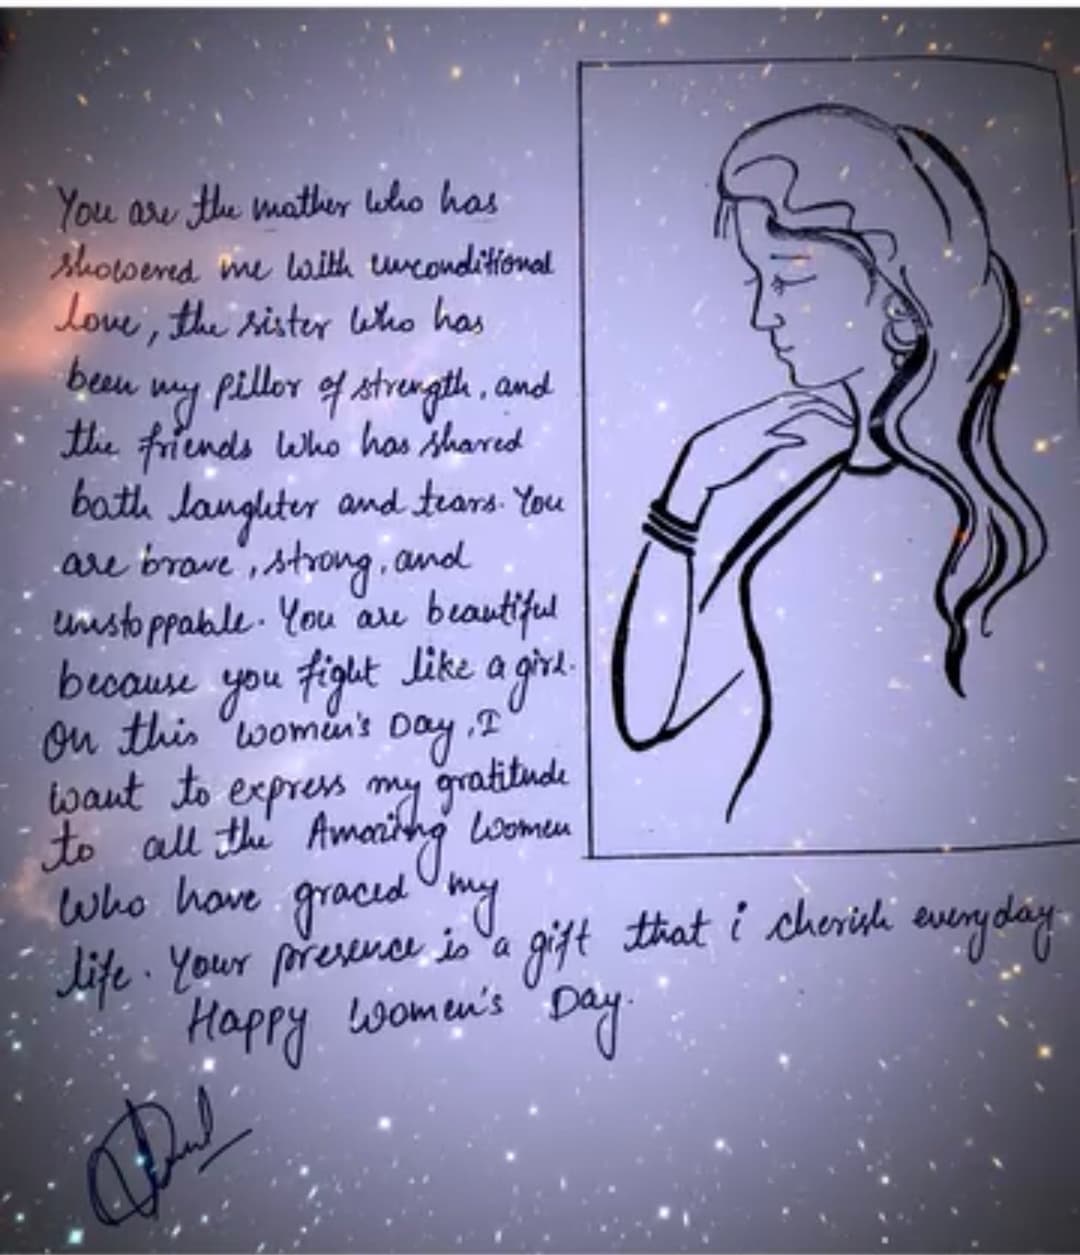 You are the mother who has
showered me with unconditional
love, the sister who has
been my pillor of strength, and
the friends who has shared
both laughter and tears. You
are brave, strong, and
unstoppable. You are beautiful
because you fight like a girl.
On this women's Day, I
want to express my gratitude
to all the Amazing women
who have graced my
life. Your presence is a gift that i cherish everyday
Happy Women's Day.